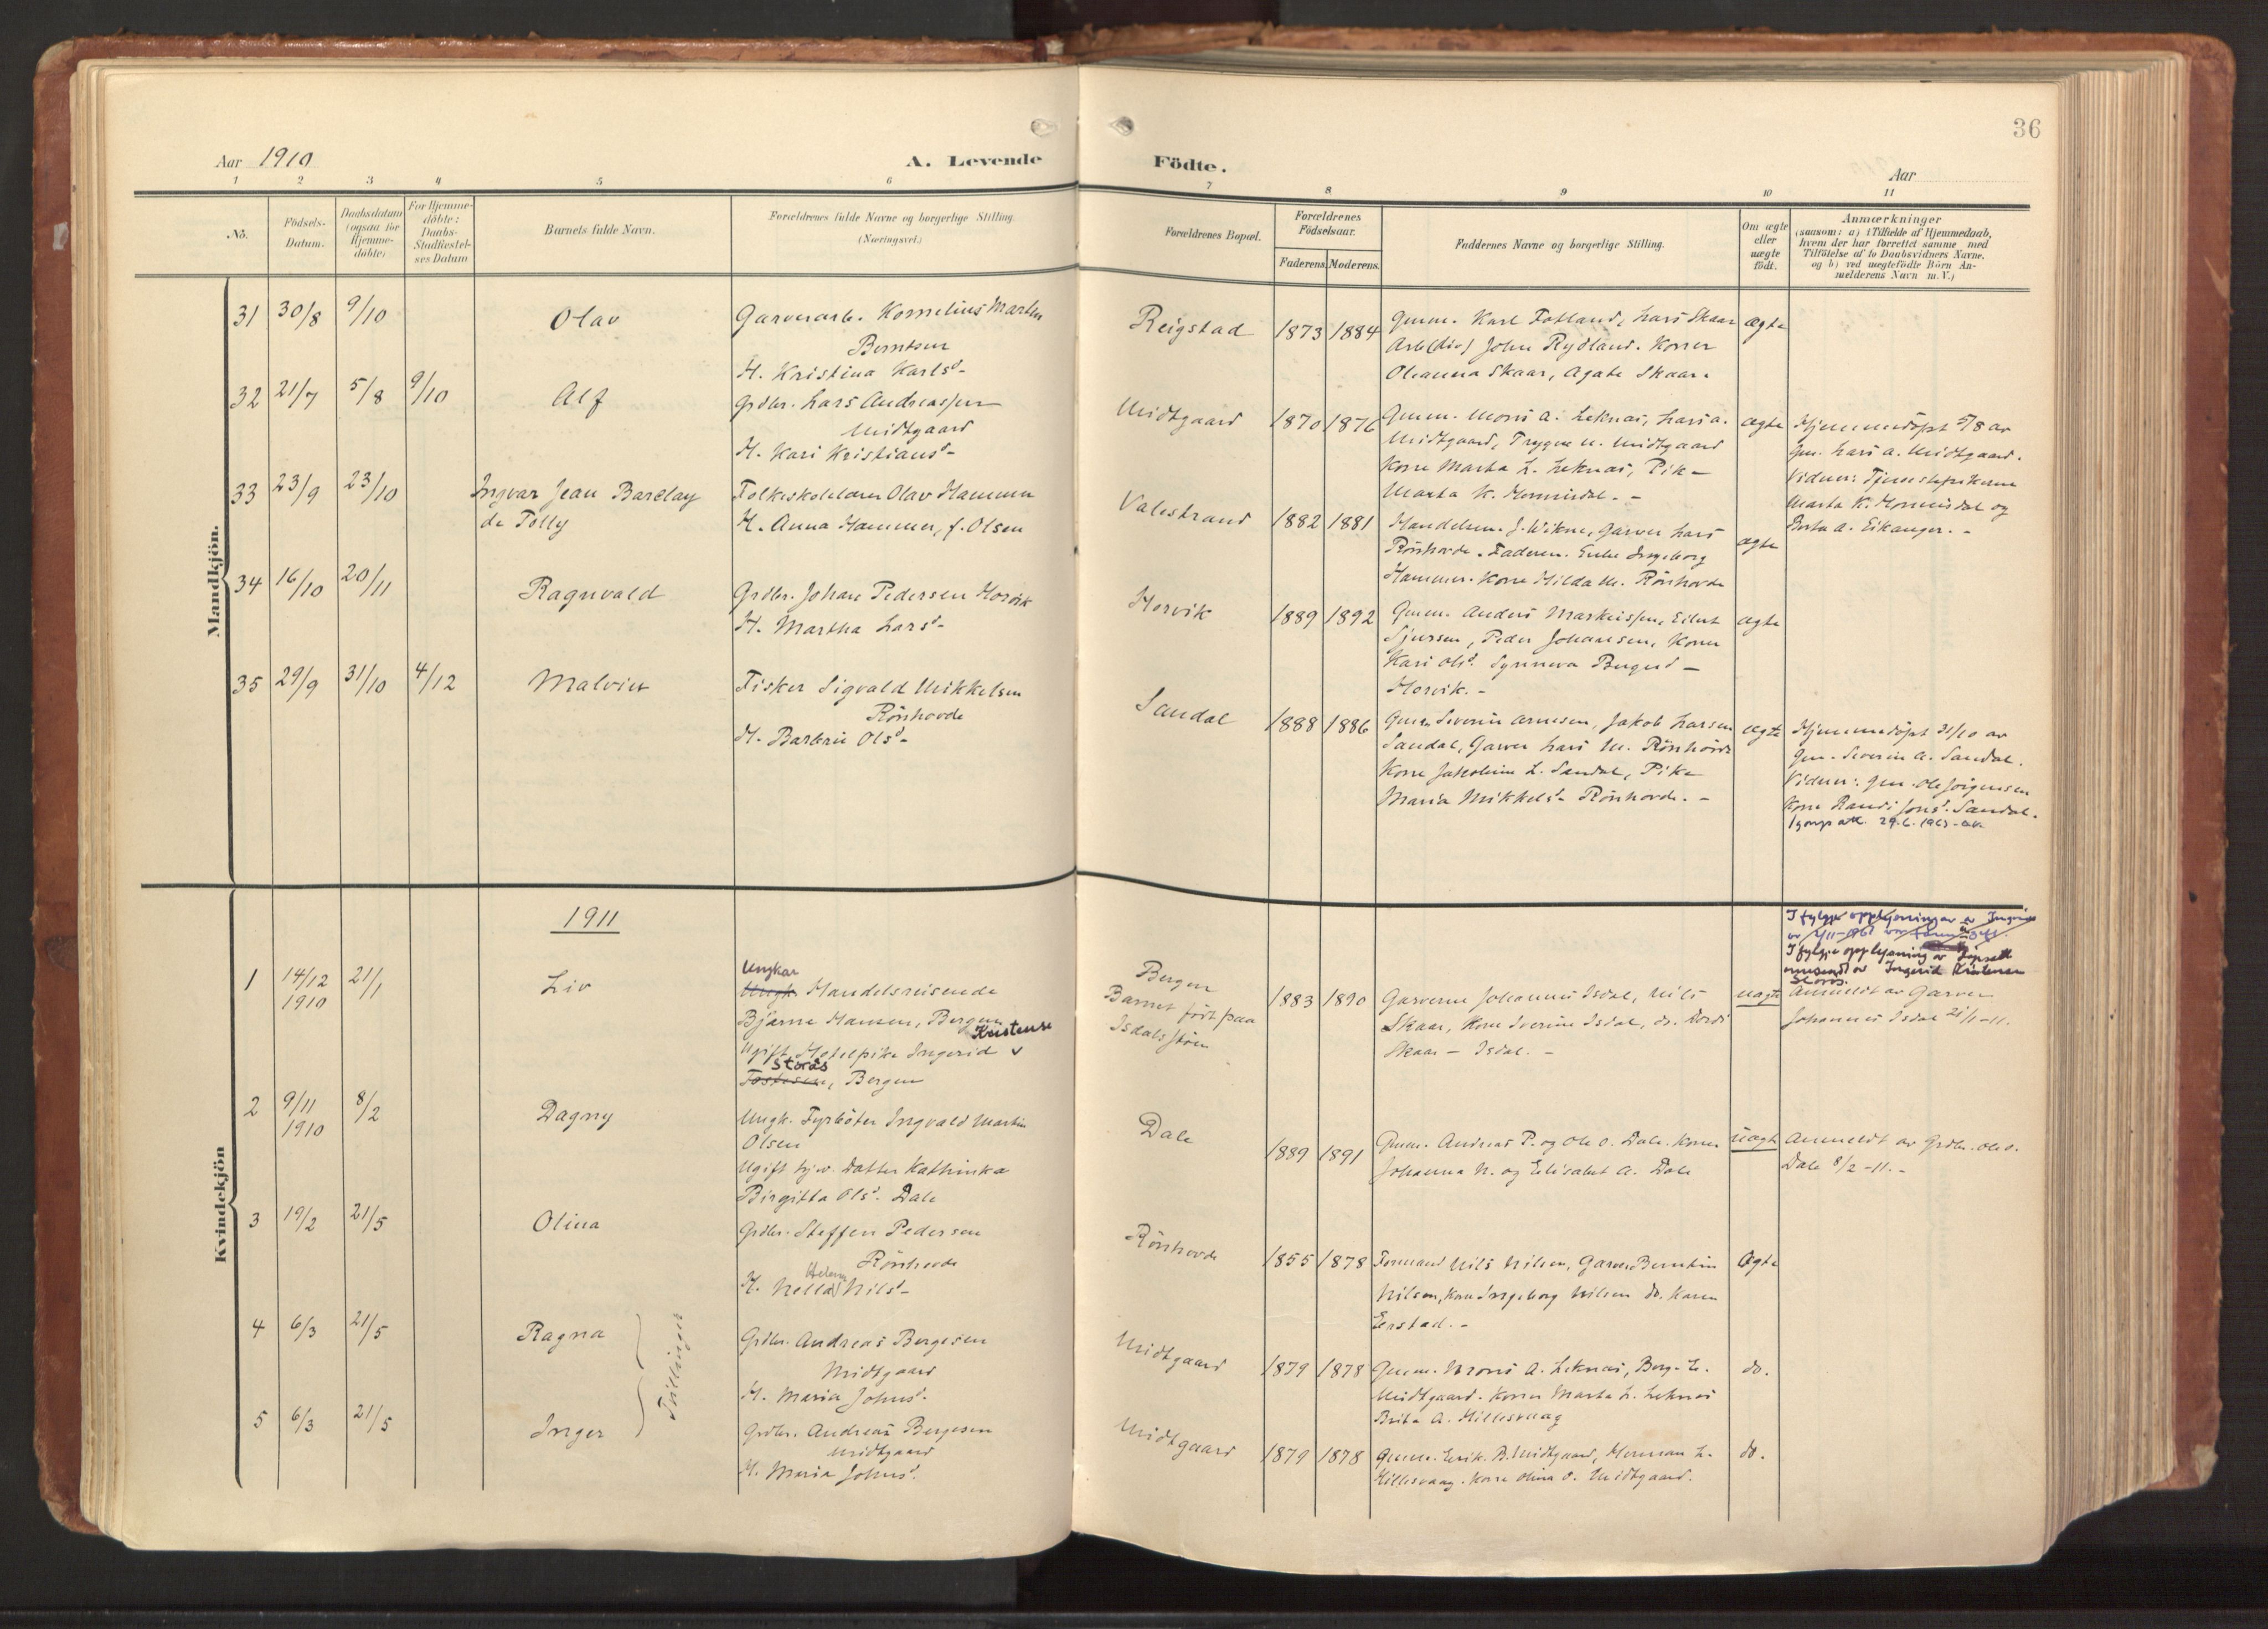 36
Aar 1910
A. Levende
Födte.
Aar
1 2 3 4 5 6 7 8 9 10 11
No.
Födsels-
Datum.
Daabsdatum
(ogsaa for
Hjemme-
döbte)
For Hjemme-
döbte:
Daabs-
Stadfæstel-
ses Datum
Barnets fulde Navn.
Forældrenes fulde Navne og borgerlige Stilling.
(Næringsvei.)
Forældrenes Bopæl.
Forældrenes
Födselsaar.
Faderens. Moderens.
Faddernes Navne og borgerlige Stilling.
Om ægte
eller
uægte
födt.
Anmærkninger
(saasom: a) i Tilfælde af Hjemmedaab,
hvem der har forrettet samme med
Tilföielse af to Daabsvidners Navne.
og b) ved uægtefödte Börn An-
melderens Navn m. V.)
Mandkjön.
31 30/8 9/10 Olav
Garverarb. Kornelius Martin
Berntsen
H. Kristina Karlsd-
Reigstad 1873 1884
Gmm. Karl Fotland, Lars Skaar
Arb (dio) John Rydland. Koner
Oleanna Skaar, Agate Skaar.
ægte
32 21/7 5/8 9/10 Alf
Grdbr. Lars Andreassen
Midtgaard
H. Kari Kristiansd-
Midtgaard 1870 1876
Gmm. Mons A. Leknes, Lars A.
Midtgaard, Trygve M. Midtgaard
Kone Marta L. Leknes, Pike
Marta K. Hommedal. -
ægte
Hjemmedöpt 5/8 av
Gm. Lars A. Midtgaard.
Vidner: Tjenestepikerne
Marta K. Hommedal og
Berta A. Eikanger. -
33 23/9 23/10 Ingvar Jean Barclay
de Tolly
Folkeskolelærer Olav Hammer
H. Anna Hammer, f. Olsen
Valestrand 1882 1881
Handelsm. J. Wikne, Garver Lars
Rönhovde. Faderen. Enke Ingeborg
Hammer. Kone Hilda M. Rönhovde
ægte
34 16/10 20/11 Ragnvald
Grdbr. Johan Pedersen Horvik
H. Martha Larsd-
Horvik 1889 1892
Gmm. Anders Markussen, Eilert
Sjursen, Peder Johansen, Koner
Kari Olsd. Synneva Bergesd -
Horvik. -
ægte
35 29/9 31/10 4/12 Malvin
Fisker Sigvald Mikkelsen
Rönhovde
H. Barbrie Olsd-
Sandal 1888 1886
Gmm Severin Arnesen, Jakob Larsen
Sandal, Garver Lars M. Rönhovde
Kone Jakobine L. Sandal, Pike
Maria Mikkelsd- Rönhovde. -
ægte
Hjemmedöpt 31/10 av
Gm. Severin A. Sandal.
Vidner: Gm. Ole Jörgensen
Kone Randi Jonsd. Sandal.
29.6.1963
Kvindekjön
1911
1 14/12
1910
21/1 Liv
Ungkar
Ungk. Handelsreisende
Bjarne Hansen, Bergen
Kristense
Ugift Hotelpike Ingerid v
Storås
Tostesen, Bergen
Bergen
Barnet födt paa
Isdalsstöen
1883 1890
Garverne Johannes Isdal, Nils
Skaar, Kone Iverine Isdal, do. Kordi
Skaar - Isdal. -
uægte
I fylgje opplysningar av Ingerid
I fylgje opplysning av
innsendt av Ingerid Kristensen
Storås.
Anmeldt av Garver
Johannes Isdal 21/1-11.
2 9/11
1910
8/2 Dagny
Ungk. Fyrböter Ingvald Martin
Olsen
Ugift hj.v. Datter Kathinka
Birgitta Olsd. Dale
Dale 1889 1891
Gmm. Andreas P. og Ole O. Dale. Koner
Johanna N. og Elisabet A. Dale
uægte
Anmeldt av Grdbr. Ole O.
Dale 8/2 -11. -
3 19/2 21/5 Olina
Grdbr. Steffen Pedersen
Rönhovde
Helena
H. Nella Nilsd-
Rönhovde 1855 1878
Formand Nils Nilsen, Garver Berntin
Nilsen, Kone Ingeborg Nilsen do. Karen
Eerstad. -
Ægte
4 6/3 21/5 Ragna
Tvillinger
Grdbr. Andreas Bergesen
Midtgaard
H. Maria Johnsd-
Midtgaard 1879 1878
Gmm. Mons A. Leknes, Berge E.
Midtgaard. Koner Marta L. Leknes
Brita A. Hillesvaag
do.
5 6/3 21/5 Inger
Grdbr. Andreas Bergesen
Midtgaard
H. Maria Johnsd.
Midtgaard 1879 1878
Gmm. Erik B. Midtgaard, Herman L.
Hillesvaag. Kone Olina O. Midtgaard.
do.